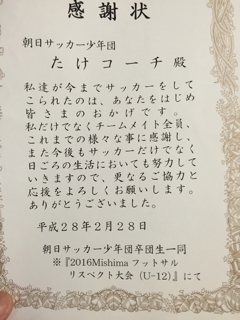 感謝状
朝日サッカー少年団
たけコーチ 殿
私達が今までサッカーをして
こられたのは、あなたをはじめ
皆さまのおかげです。
私だけでなくチームメイト全員、
これまでの様々な事に感謝し、
また今後もサッカーだけでなく
日ごろの生活においても努力して
いきますので、更なるご協力と
応援をよろしくお願いします。
ありがとうございました。
平成28年2月28日
朝日サッカー少年団卒団生一同
※『2016Mishima フットサル
リスペクト大会（U-12）』にて